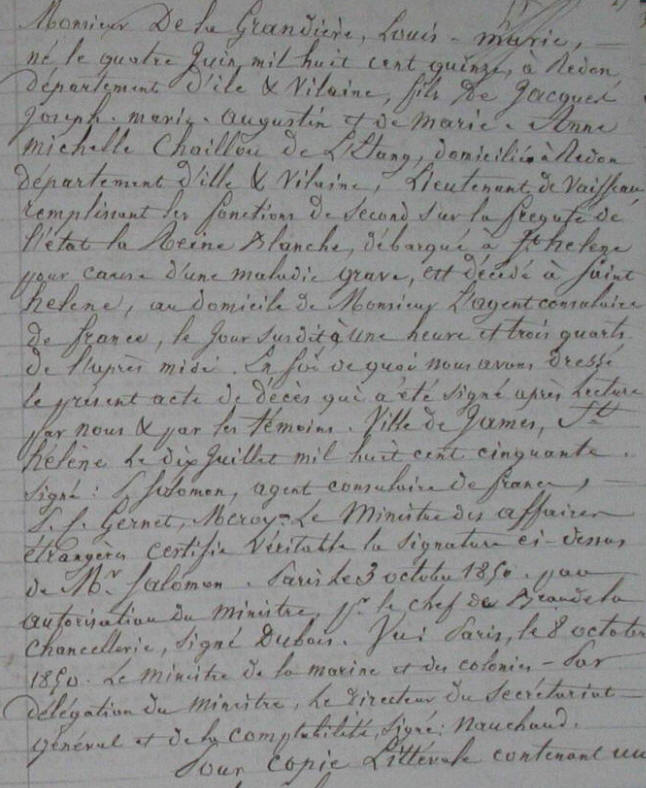 Monsieur De la Grandière, Louis-marie, —
né le quatre Juin mil huit cent quinze, à Redon
département d'ile & Vilaine, fils de Jacques
Joseph-marie-augustin et de marie-Anne
michelle Chaillou de L'Etang, domiciliés à Redon
département d'ille & Vilaine, Lieutenant de Vaisseau
remplissant les fonctions de second sur la fregate de
l'état la Reine Blanche, débarqué à St helene
pour cause d'une maladie grave, est décédé à saint
helene, au domicile de Monsieur L'agent consulaire
de france, le jour susdit à une heure et trois quarts
de l'après midi. En foi de quoi nous avons dressé
le présent acte de décès qui a été signé après lecture
par nous & par les témoins. Ville de James, Ste
helène le dix Juillet mil huit cent cinquante.
signé: S. Salomon, agent consulaire de france, —
Gernet, Meroy = Le Ministre des affaires
étrangères certifie véritable la signature ci-dessus
de Mr. Salomon. Paris le 3 octobre 1850. par
autorisation du ministre, pr le chef du Bureau de la
chancellerie, signé Dubois. Vu: Paris, le 8 octobre
1850. Le ministre de la marine et des colonies - Par
délégation du Ministre, Le Directeur du secrétariat —
général et de la comptabilité, signé: Nauchaud.
Pour copie Littérale contenant un